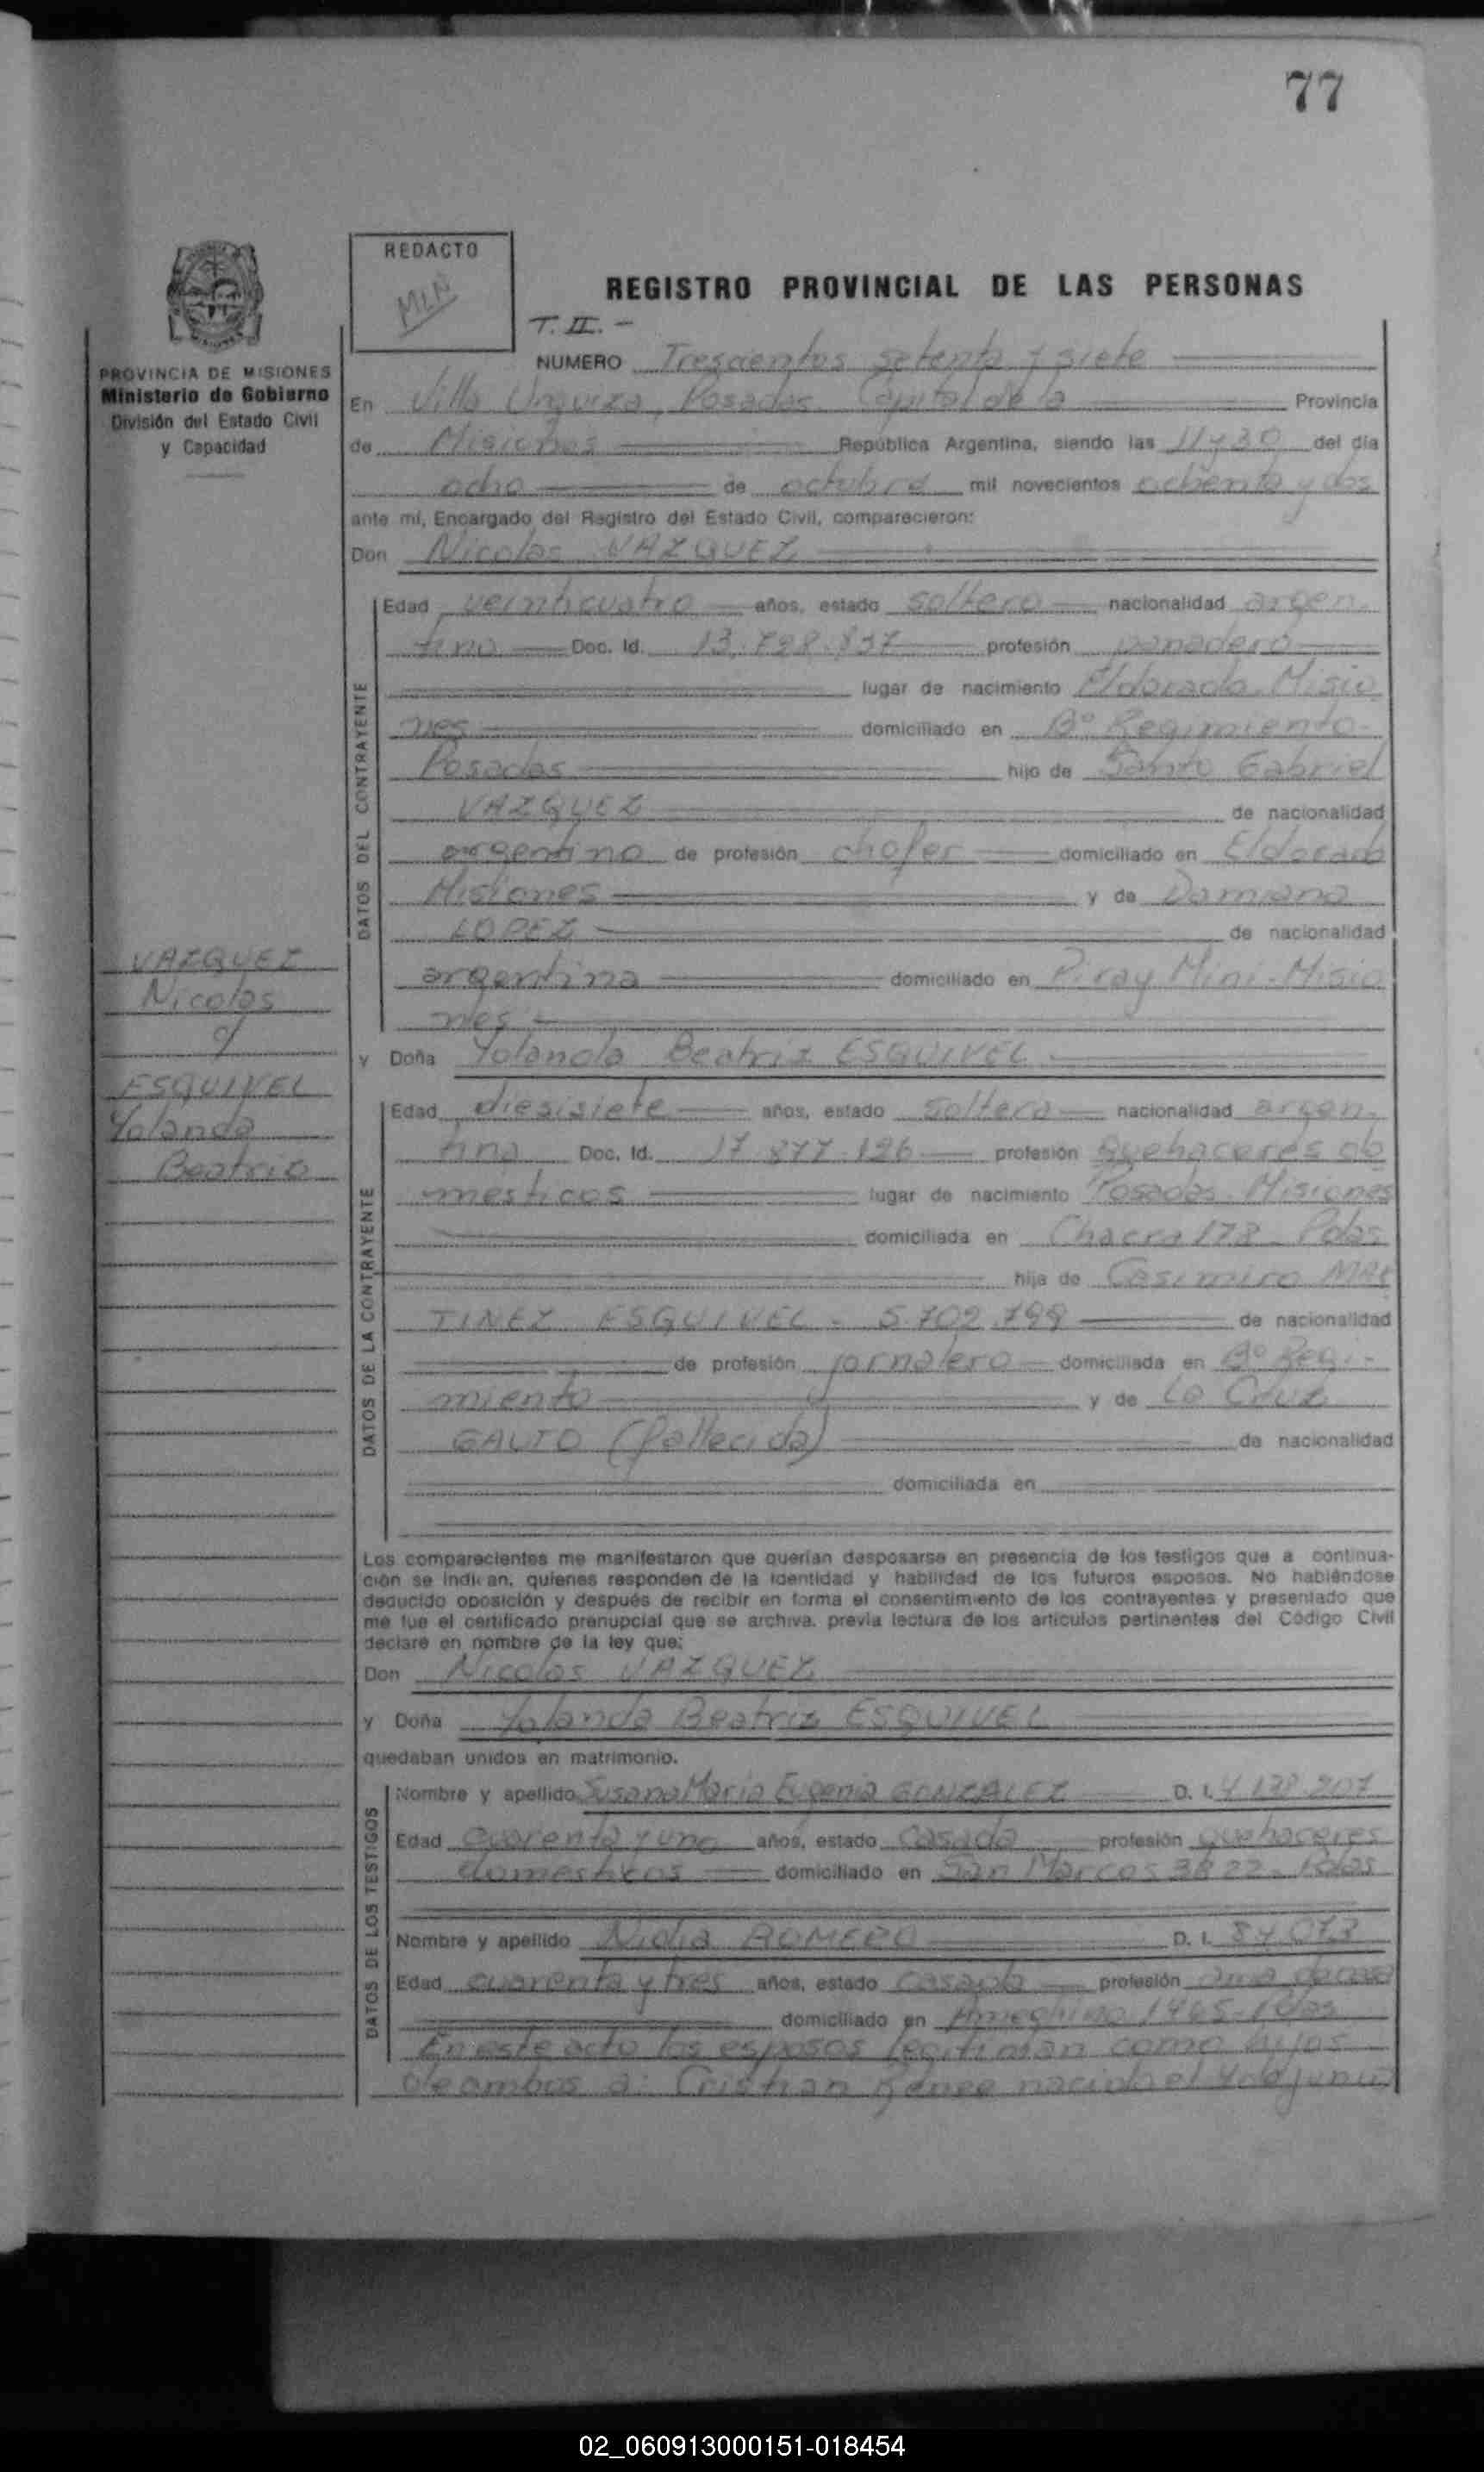 77
REDACTO
MLN
REGISTRO PROVINCIAL DE LAS PERSONAS
T. II. -
PROVINCIA DE MISIONES
Ministerio de Gobierno
División del Estado Civil
y Capacidad
NUMERO Trescientos setenta y siete
En Villa Urquiza, Posadas Capital de la Provincia
de Misiones República Argentina, siendo las 11 y 30 del día
ocho de octubre mil novecientos ochenta y dos
ante mí, Encargado del Registro del Estado Civil, comparecieron:
Don Nicolas VAZQUEZ
DATOS DEL CONTRAYENTE
Edad veinticuatro años, estado soltero nacionalidad argen.
tino Doc. Id. profesión panadero
lugar de nacimiento Eldorado Misio
nes domiciliado en B° Regimiento -
Posadas hijo de Santo Gabriel
VAZQUEZ de nacionalidad
argentino de profesión chofer domiciliado en Eldorado
Misiones y de Damiana
LOPEZ de nacionalidad
argentina domiciliado en Piray Mini - Misio
nes
VAZQUEZ
Nicolas
c/
ESQUIVEL
Yolanda
Beatriz
y Doña Yolanda Beatriz ESQUIVEL
DATOS DE LA CONTRAYENTE
Edad diesisiete años, estado soltera nacionalidad argen.
tina Doc. Id. 17.877.126 profesión Quehaceres do
mesticos lugar de nacimiento Posadas Misiones
domiciliada en Chacra 178 - Pdas
hija de Casimiro MAR
TINEZ ESQUIVEL - 5.702.799 de nacionalidad
de profesión jornalero domiciliada en B° Regi -
miento y de La Cruz
GAUTO (fallecida) de nacionalidad
domiciliada en
Los comparecientes me manifestaron que querían desposarse en presencia de los testigos que a continua-
ción se indican, quienes responden de la identidad y habilidad de los futuros esposos. No habiéndose
deducido oposición y después de recibir en forma el consentimiento de los contrayentes y presentado que
me fue el certificado prenupcial que se archiva, previa lectura de los artículos pertinentes del Código Civil
declaré en nombre de la ley que:
Don Nicolas VAZQUEZ
y Doña Yolanda Beatriz ESQUIVEL
quedaban unidos en matrimonio.
DATOS DE LOS TESTIGOS
Nombre y apellido Susana Maria Eugenia GONZALEZ D. I. 4.138.207
Edad cuarenta y uno años, estado casada profesión quehaceres
domesticos domiciliado en San Marcos 3822 - Pdas
Nombre y apellido Nidia ROMERO D. I. 84.073
Edad cuarenta y tres años, estado casada profesión ama de casa
domiciliado en Ameghino 1465 - Pdas
En este acto los esposos legitiman como hijos
de ambos a: Cristian Renee nacido el 4 de junio
02_060913000151-018454